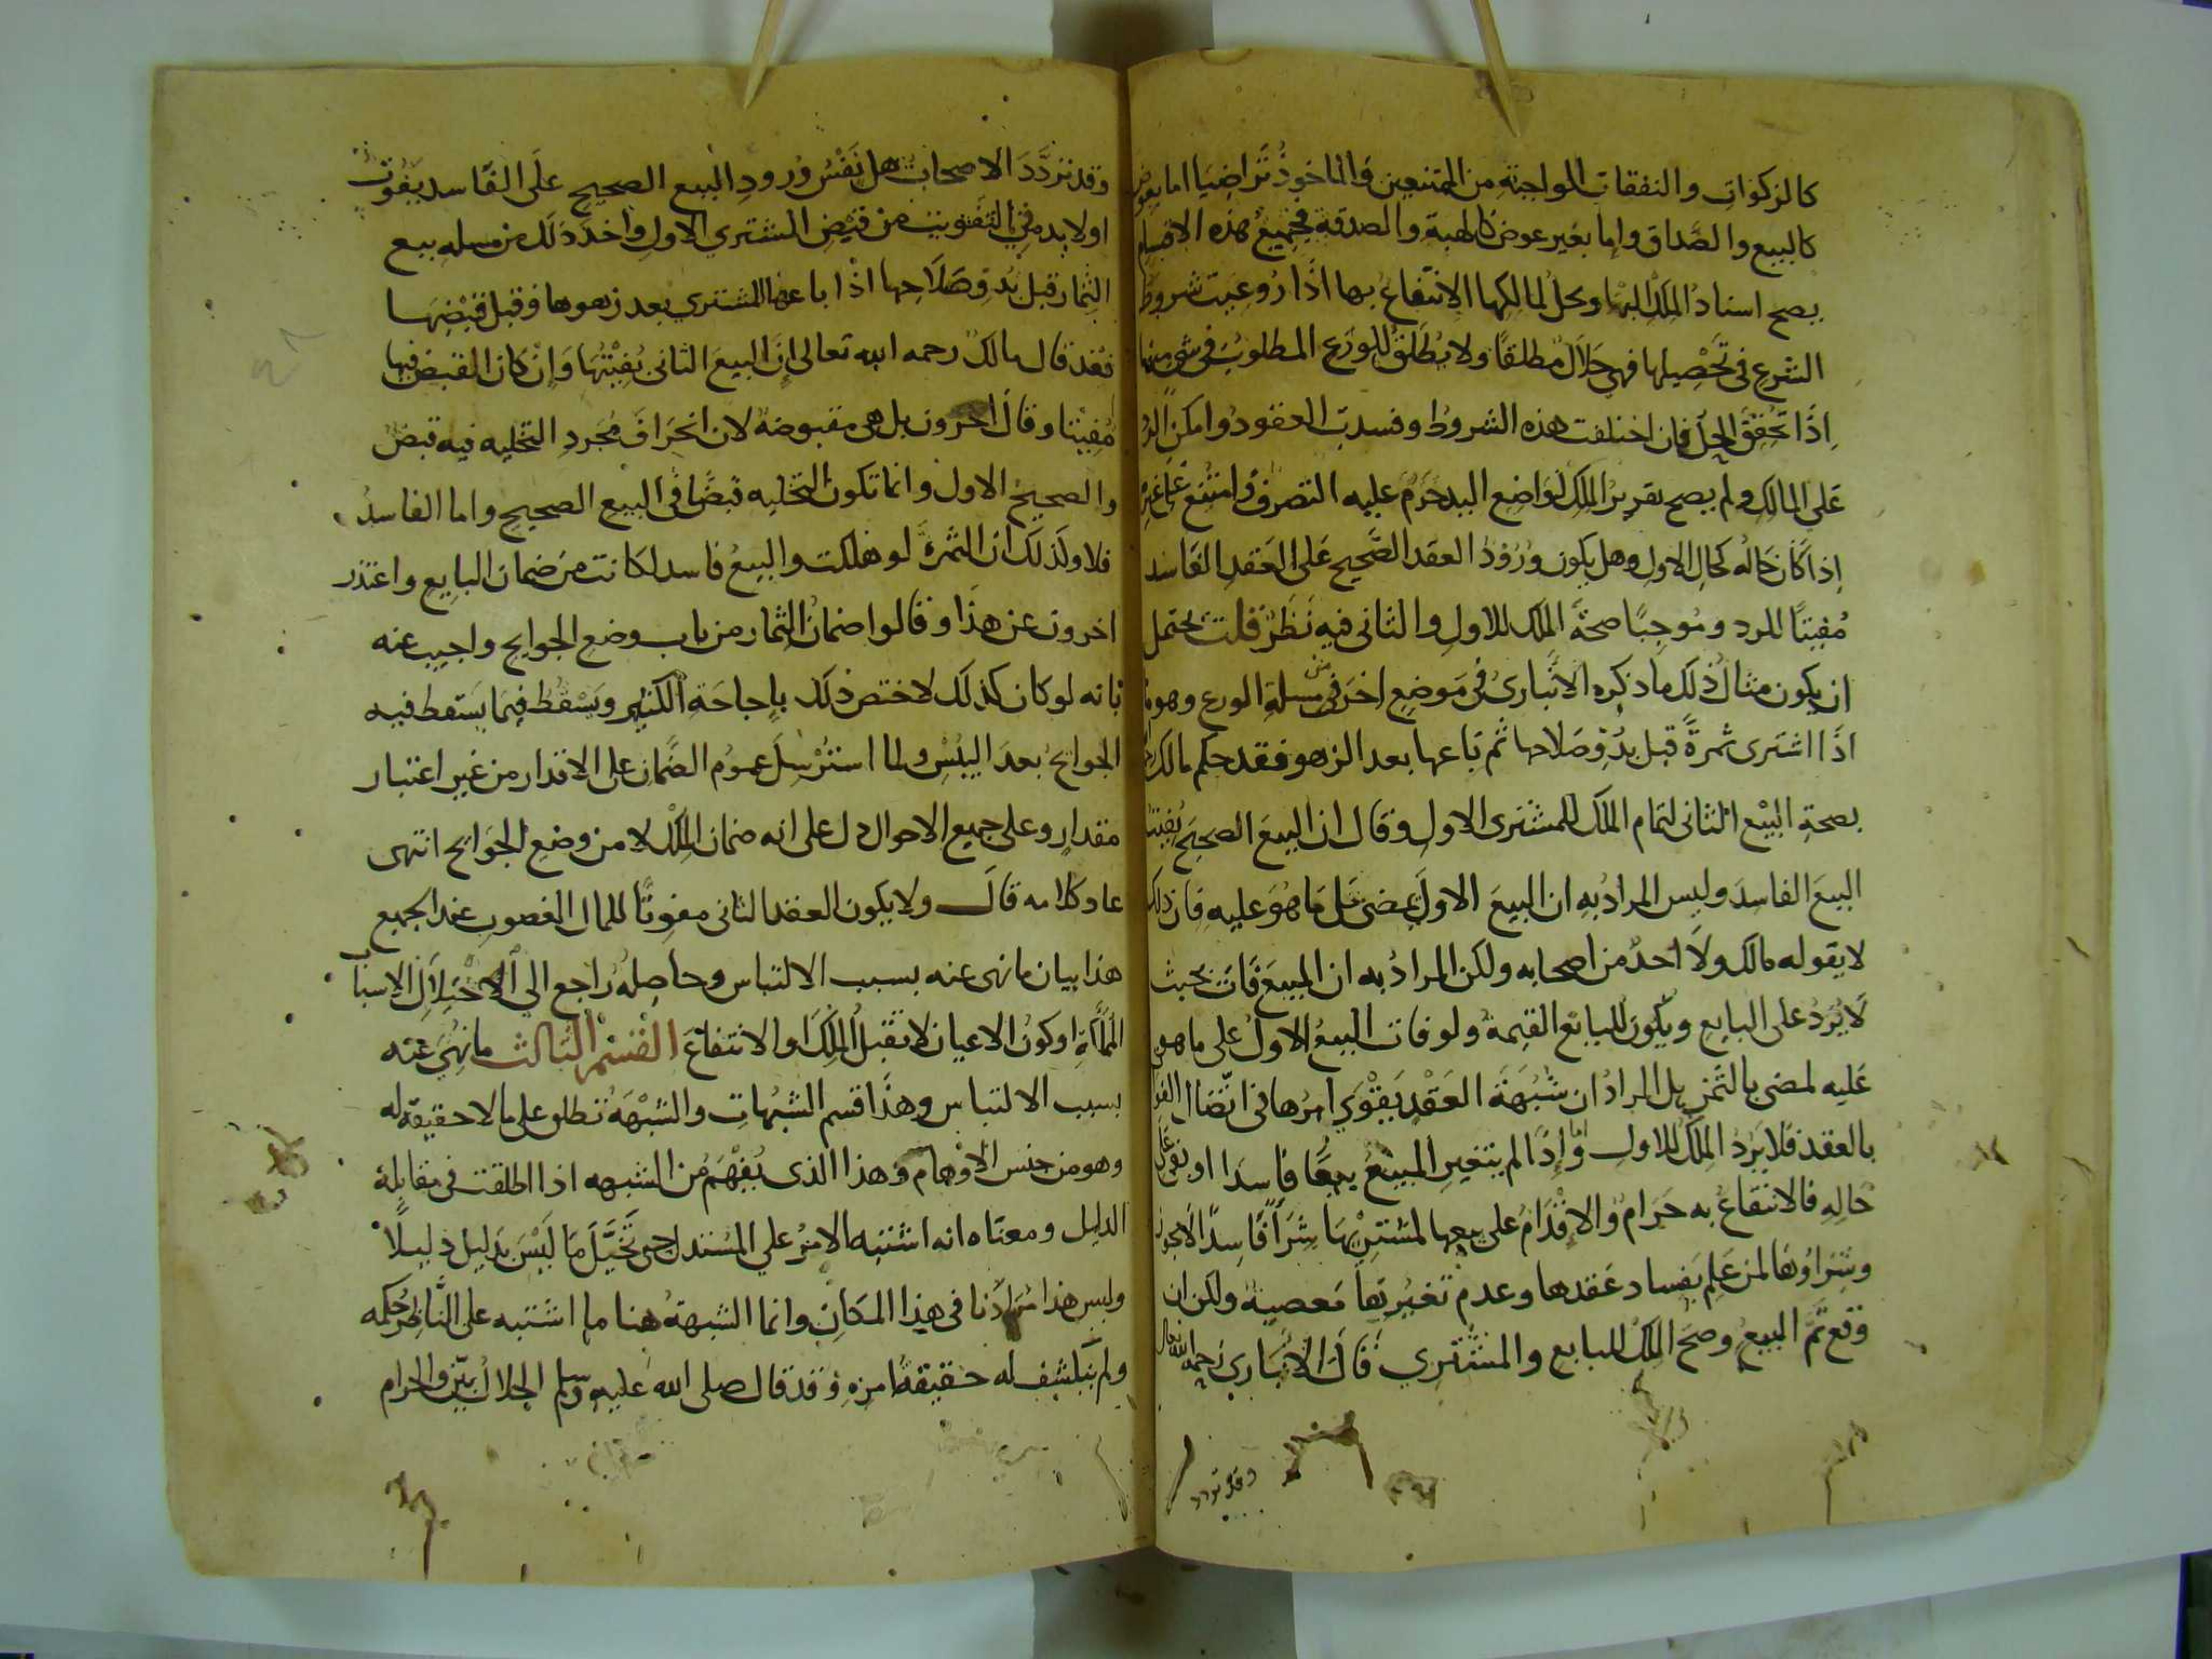 كالزكوات والنفقات الواجبة من الممتنعين والماخوذ تراضيا اما بعوض
كالبيع والصداق واما بغير عوض كالهبة والصدقة فجميع هذه الاقسام
يصح اسناد الملك اليها ويحل لمالكها الانتفاع بها اذا روعيت شروط
الشرع في تحصيلها فهي حلال مطلقا ولا يطلق الورع المطلوب في شي منها
اذا تحقق الحل فان اختلفت هذه الشروط وفسدت العقود وامكن الرد
على المالك ولم يصح تقرير الملك لواضع اليد حرم عليه التصرف وامتنع على غيره
اذا كان حاله كحال الاول وهل يكون ورود العقد الصحيح على العقد الفاسد
مفيتا للرد وموجبا صحة الملك للاول والثاني فيه نظر قلت يحتمل
ان يكون مثال ذلك ما ذكره الانباري في موضع اخر في مسلة الورع وهو ما
اذا اشترى ثمرة قبل بدو صلاحها ثم باعها بعد الزهو فقد حكم مالك
بصحة البيع الثاني لتمام الملك للمشتري الاول وقال ان البيع الصحيح يفيت
البيع الفاسد وليس المراد به ان البيع الاول يمضي على ما هو عليه فان ذلك
لا يقوله مالك ولا احد من اصحابه ولكن المراد به ان المبيع فات بحيث
لا يرد على البايع ويكون للبايع القيمة ولو فات البيع الاول على ما هو
عليه لمضى بالثمن بل المراد ان شبهة العقد يقوى امرها في اتصال الفوات
بالعقد فلا يرد الملك للاول واما اذا لم يتغير المبيع بيعا فاسدا او بقي على
حاله فالانتفاع به حرام والاقدام على بيعها لمشتريها شرا فاسدا لا يجوز
وشراوها لمن علم بفساد عقدها وعدم تغيرتها معصية ولكن ان
وقع تم البيع وصح الملك للبايع والمشتري قال الانباري رحمه الله تعالى
وقد تردد
وقد تردد الاصحاب هل نفس ورود البيع الصحيح على الفاسد يفوت
او لا بد في التفويت من قبض المشتري الاول واخذ ذلك من مسله بيع
الثمار قبل بدو صلاحها اذا باعها المشتري بعد زهوها وقبل قبضها
فقد قال مالك رحمه الله تعالى ان البيع الثاني يفيتها وان كان القبض فيها
مفيتا وقال اخرون بل هي مقبوضة لان انحراف مجرد التخليه فيه قبض
والصحيح الاول وانما تكون التخليه قبضا في البيع الصحيح واما الفاسد
فلا ولذلك ان الثمرة لو هلكت والبيع فاسد لكانت من ضمان البايع واعتذر
اخرون عن هذا وقالوا ضمان الثمار من باب وضع الجوايح واجيب عنه
بانه لو كان كذلك لاختص ذلك باجاحة الكثير ويسقط فيما يسقط فيه
الجوايح بعد اليبس ولما استرسل عموم الضمان على الاقدار من غير اعتبار
مقدار وعلى جميع الاحوال دل على انه ضمان الملك لا من وضع الجوايح انتهى
عاد كلامه قال ولا يكون العقد الثاني مفوتا للمال المغصوب عند الجميع
هذا بيان ما نهى عنه بسبب الالتباس وحاصله راجع الى الاختلال الاسباب
المملكة او كون الاعيان لا تقبل الملك او الانتفاع القسم الثالث ما نهي عنه
بسبب الالتباس وهذا قسم الشبهات والشبهة تطلق على ما لا حقيقة له
وهو من جنس الاوهام وهذا الذي يفهم من الشبهه اذا اطلقت في مقابلة
الدليل ومعناه انه اشتبه الامر على المستدل حتى تخيل ما ليس بدليل دليلا
وليس هذا مرادنا في هذا المكان وانما الشبهة هنا ما اشتبه على الناظر حكمه
ولم ينكشف له حقيقة امره وقد قال صلى الله عليه وسلم الحلال بين والحرام